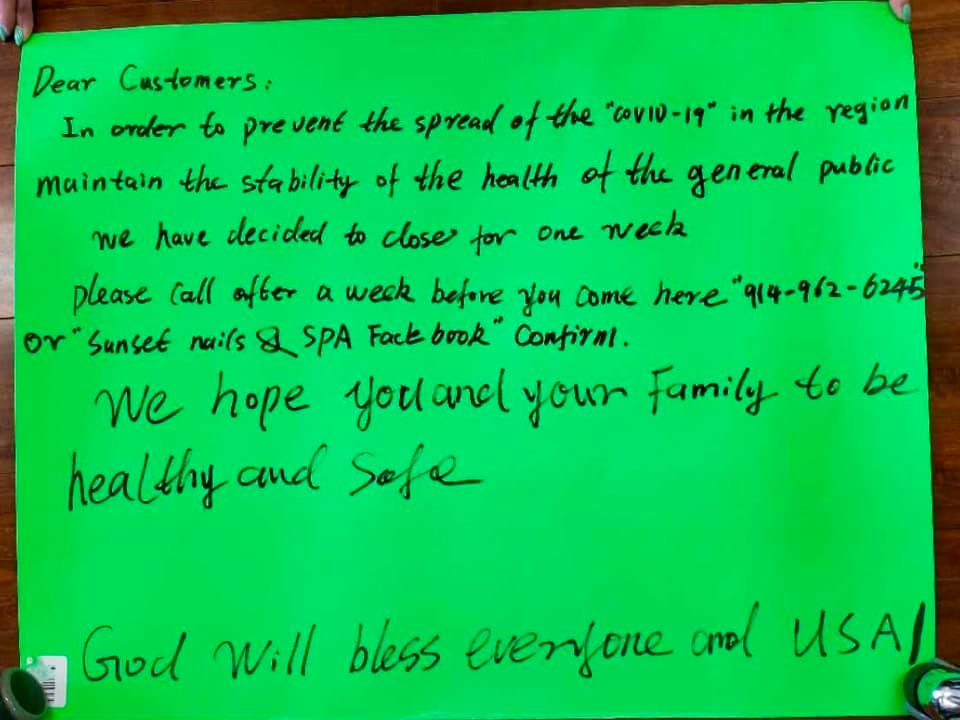 Dear Customers:
In order to prevent the spread of the "COVID-19" in the region
maintain the stability of the health of the general public
we have decided to close for one week
please call after a week before you come here "914-962-6245"
or "Sunset nails & SPA Facebook" Confirm.
We hope you and your Family to be
healthy and Safe
God will bless everyone and USA!